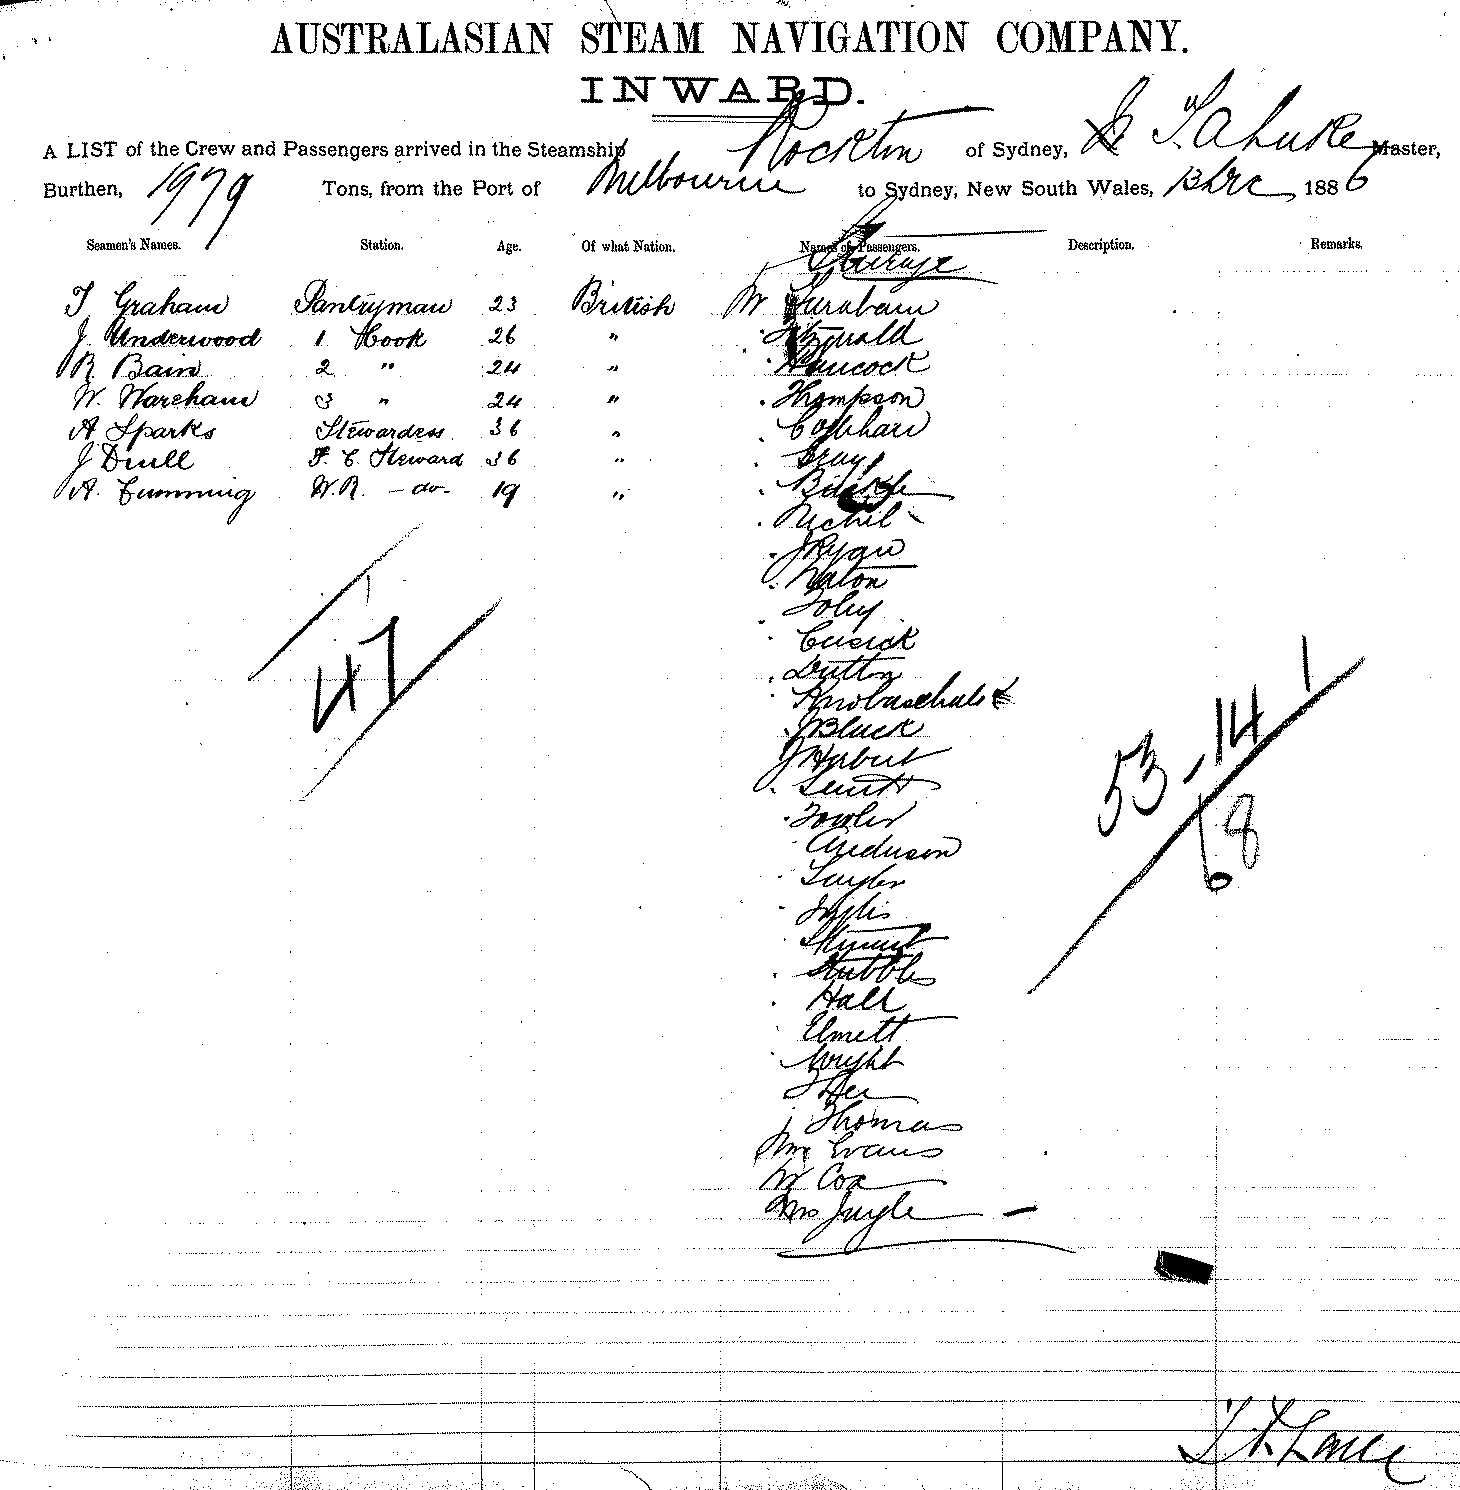 AUSTRALASIAN STEAM NAVIGATION COMPANY.
INWARD.
A LIST of the Crew and Passengers arrived in the Steamship Rockton of Sydney, Master,
Burthen, 1979 Tons, from the Port of Melbourne to Sydney, New South Wales, 13 Dec 1886
Seamen's Names. Station. Age. Of what Nation. Names of Passengers. Description. Remarks.
Steerage
T Graham Pantryman 23 British Mr
J. Underwood 1 Cook 26 "
R. Bain 2 " 24 " Hancock
W. Wareham 3 " 24 " Thompson
A Sparks Stewardess 36 "
J F. C. Steward 36 " Gray
A. Cumming W.R. -do- 19 "
Nichil
J Ryan
Foley
Cusick
Dutton
J Black
J Herbert
Fowler
Anderson
Stubbs
Hall
Elmett
Wright
Thomas
Mrs Evans
Mr Cox
Mrs
47
53 - 14 1
68